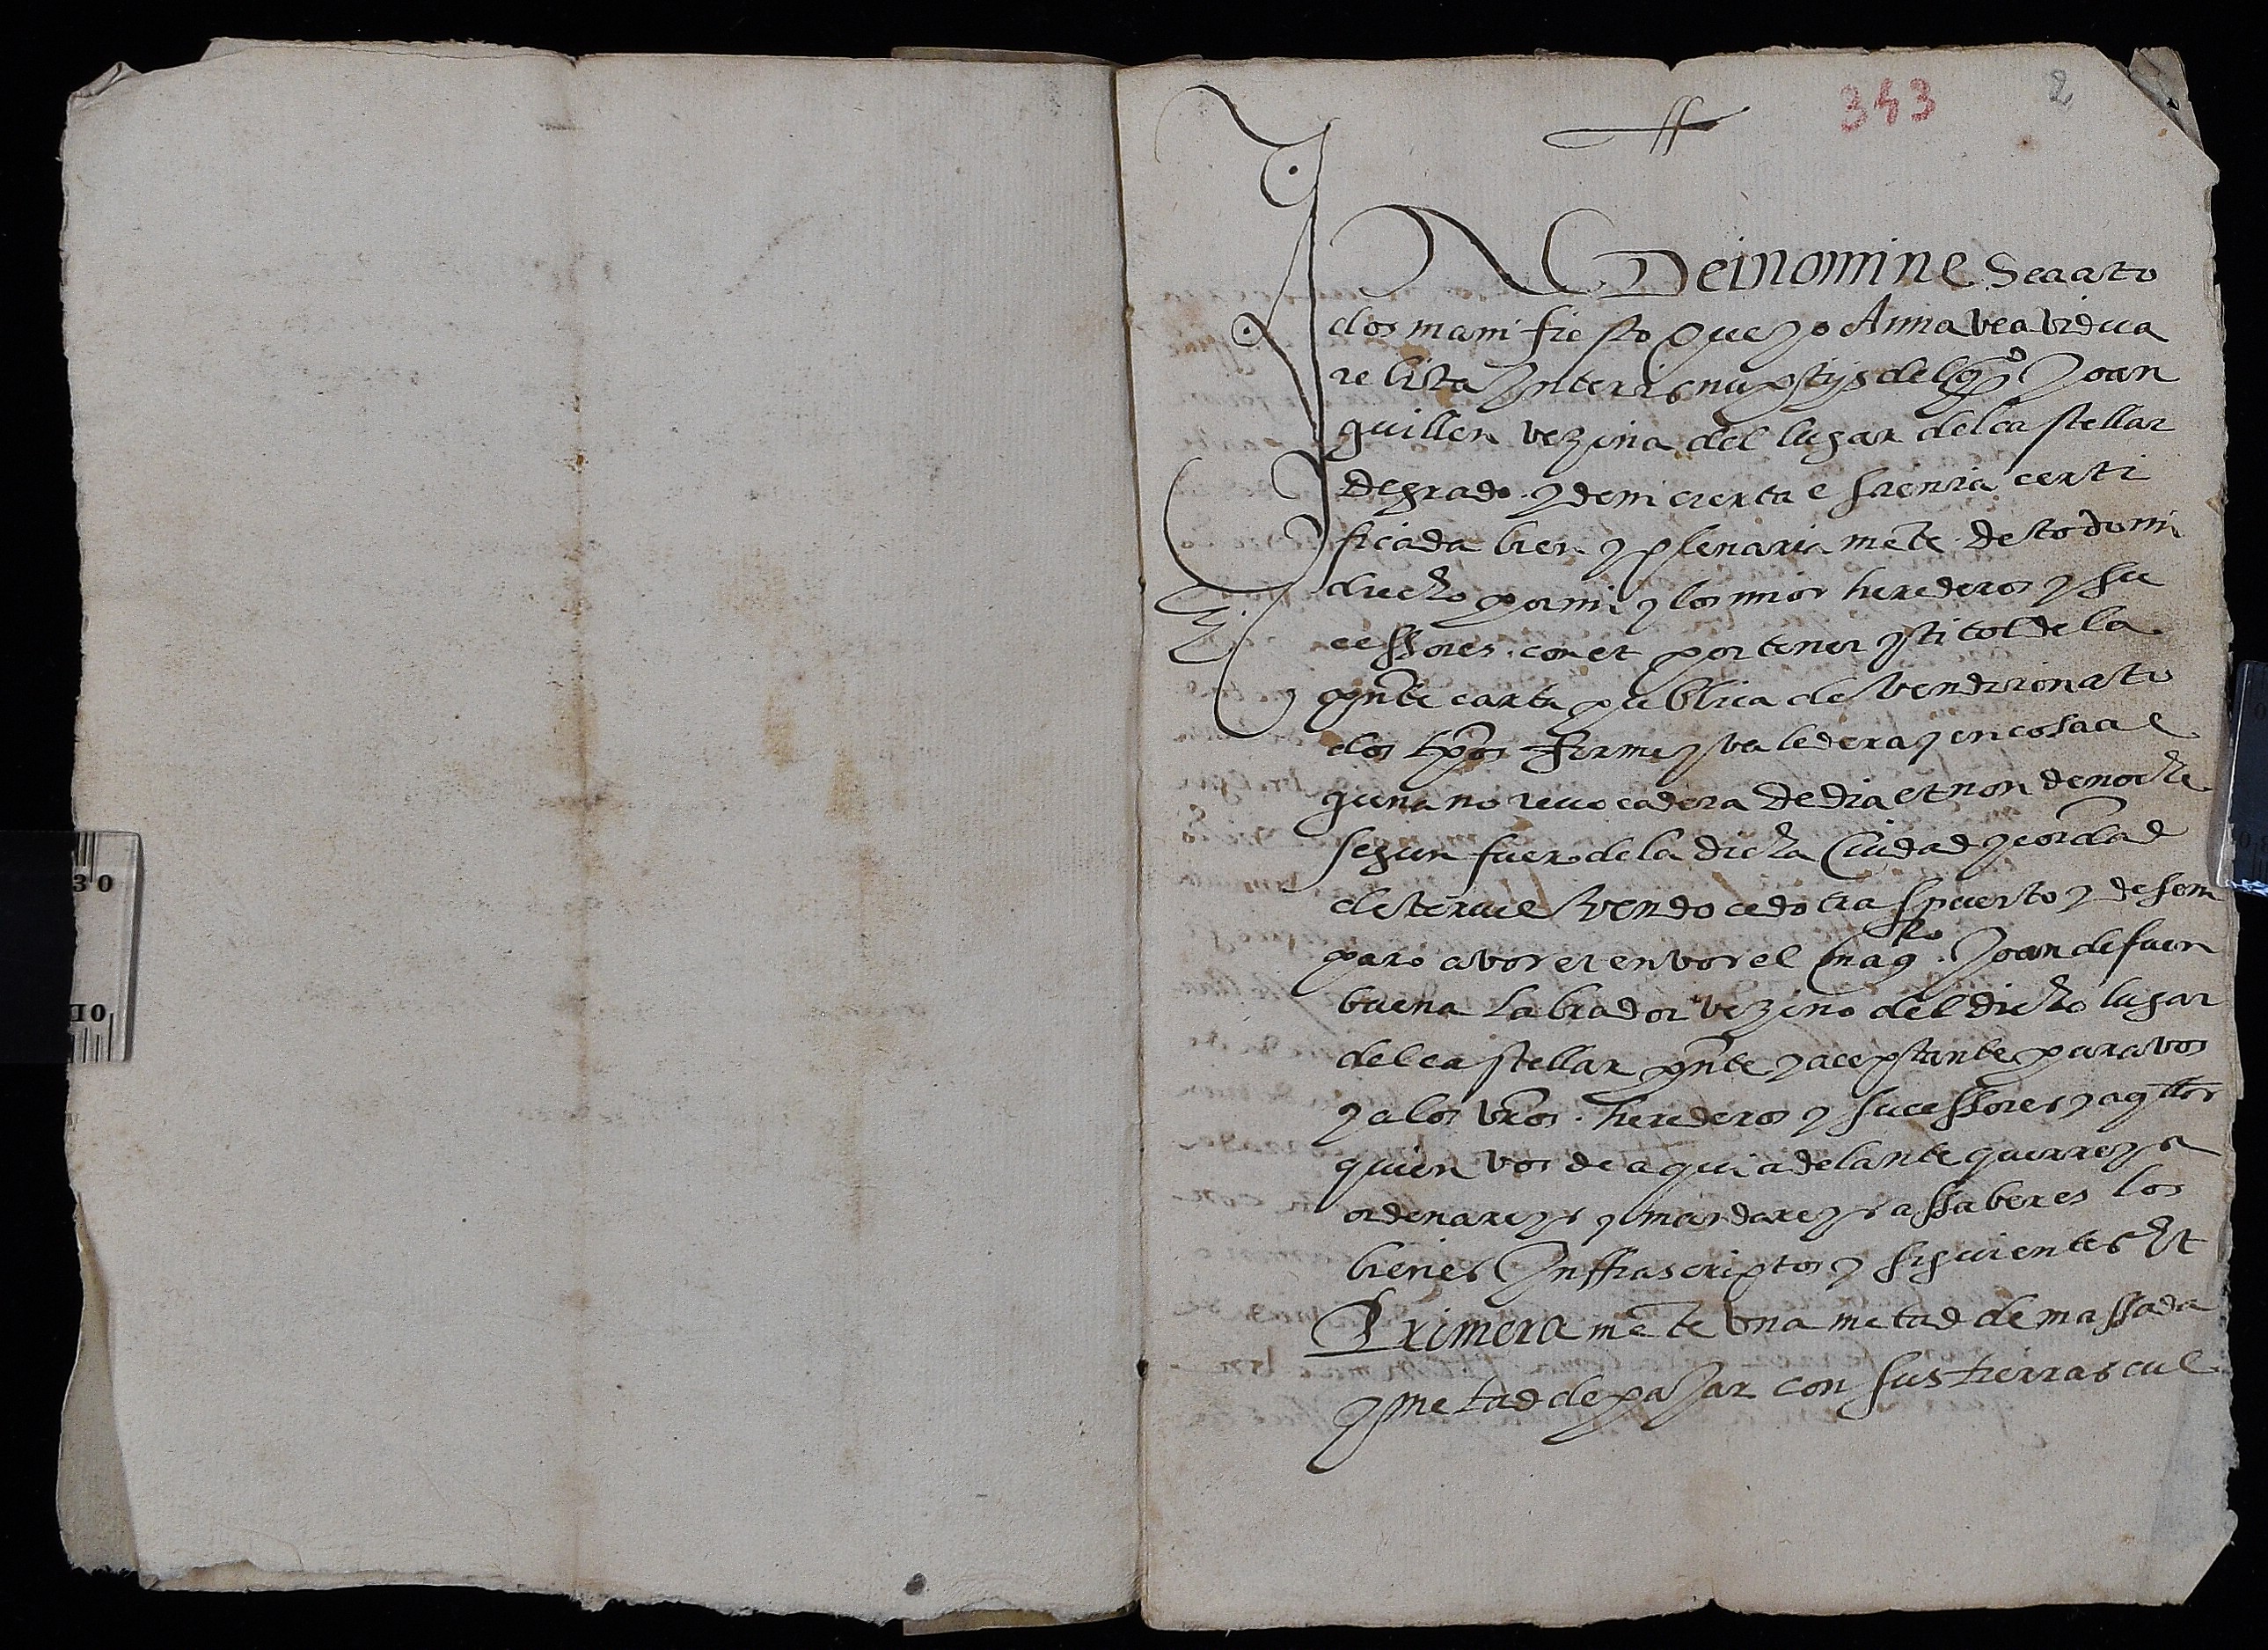 343 2
IN Dei nomine Sea a to
dos manifiesto que yo Anna vea vidua
relicta In terris nuptijs del qº Joan
guillen vezina del lugar del castellar
de grado y de mi cierta e sciencia certi
ficada bien y plenariamēte de todo mi
drecho por mi y los mios herederos y su
cessores con et por tenor y titol de la
pn̄te carta publica de vendicion a to
dos tp̄os firme y valedera y en cosa al
guna no reuocadera de dia et non de noche
segun fuero de la dicha Ciudad y com̄dad
de teruel vendo cedo traspuerto y desem
paro a vos et en vos el mag.co Joan de fuen
buena labrador vezino del dicho lugar
del castellar pn̄te y aceptante para vos
y a los vr̄os herederos y sucessores y aq̄llos
quien vos de aqui adelante querreys
ordenareys y mandareys assaber es los
bienes Inffrascriptos y siguientes Et
Primeramēte vna metad de massada
y metad de pajar con sus tierras cul
30
10